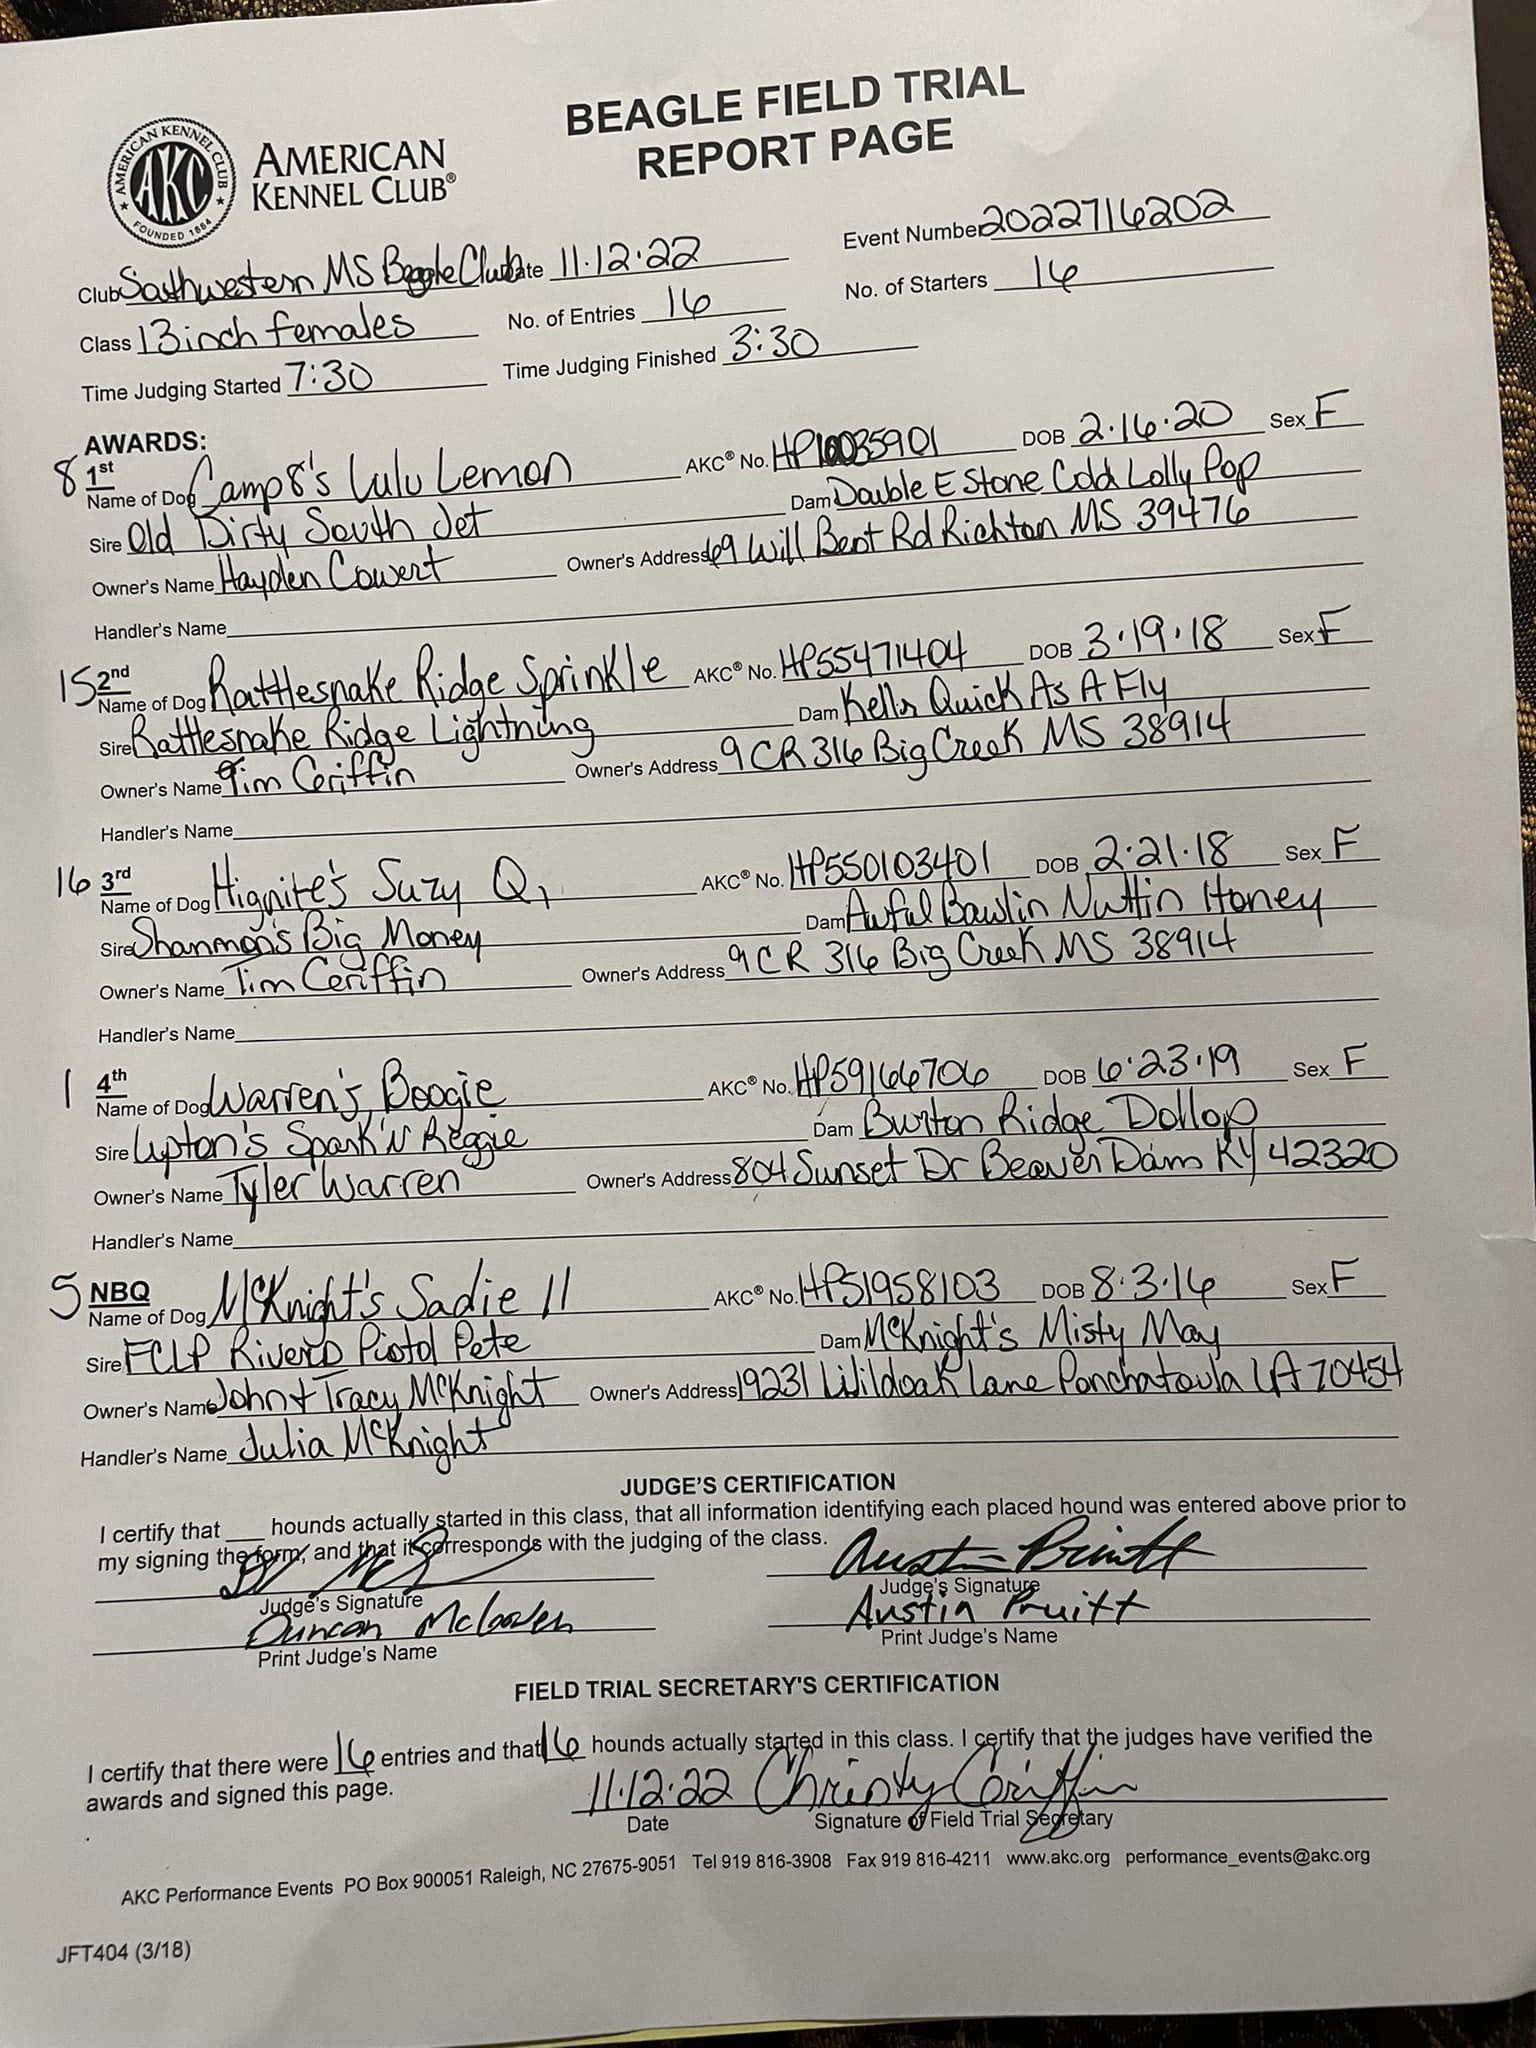 BEAGLE FIELD TRIAL
REPORT PAGE
AMERICAN KENNEL CLUB
AKC
FOUNDED 1884
AMERICAN
KENNEL CLUB®
Club Southwestern MS Beagle Club Date 11·12·22 Event Number 2022716202
Class 13 inch females No. of Entries 16 No. of Starters 16
Time Judging Started 7:30 Time Judging Finished 3:30
AWARDS:
8 1st
Name of Dog Camp 8's Lulu Lemon AKC® No. HP10035901 DOB 2·16·20 Sex F
Sire Old Dirty South Jet Dam Double E Stone Cold Lolly Pop
Owner's Name Hayden Cowert Owner's Address 69 Will Bent Rd Richton MS 39476
Handler's Name
15 2nd
Name of Dog Rattlesnake Ridge Sprinkle AKC® No. HP55471404 DOB 3·19·18 Sex F
Sire Rattlesnake Ridge Lightning Dam Kells Quick As A Fly
Owner's Name Tim Griffin Owner's Address 9 CR 316 Big Creek MS 38914
Handler's Name
16 3rd
Name of Dog Hignite's Suzy Q AKC® No. HP550103401 DOB 2·21·18 Sex F
Sire Shanmon's Big Money Dam Awful Bawlin Nuttin Honey
Owner's Name Tim Griffin Owner's Address 9 CR 316 Big Creek MS 38914
Handler's Name
1 4th
Name of Dog Warren's Boogie AKC® No. HP59166706 DOB 6·23·19 Sex F
Sire Upton's Spark'N Reggie Dam Burton Ridge Dollop
Owner's Name Tyler Warren Owner's Address 804 Sunset Dr Beaver Dam KY 42320
Handler's Name
5 NBQ
Name of Dog McKnight's Sadie II AKC® No. HP51958103 DOB 8·3·16 Sex F
Sire FCLP River's Pistol Pete Dam McKnight's Misty May
Owner's Name John + Tracy McKnight Owner's Address 19231 Wildoak Lane Ponchatoula LA 70454
Handler's Name Julia McKnight
JUDGE'S CERTIFICATION
I certify that ___ hounds actually started in this class, that all information identifying each placed hound was entered above prior to
my signing the form, and that it corresponds with the judging of the class.
Austin Pruitt
Judge's Signature Judge's Signature
Duncan Austin Pruitt
Print Judge's Name Print Judge's Name
FIELD TRIAL SECRETARY'S CERTIFICATION
I certify that there were 16 entries and that 16 hounds actually started in this class. I certify that the judges have verified the
awards and signed this page.
11·12·22 Christy Griffin
Date Signature of Field Trial Secretary
AKC Performance Events PO Box 900051 Raleigh, NC 27675-9051 Tel 919 816-3908 Fax 919 816-4211 www.akc.org performance_events@akc.org
JFT404 (3/18)